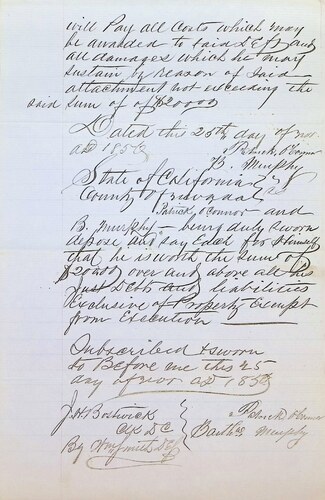 will Pay all Costs which may
be awarded to said Deft and
all damages which he may
sustain by reason of said
attachment not exceeding the
said sum of of $20000
Dated this 25th day of Nov.
AD 185 Patrick O'Connor
B. Murphy
State of California
County of
Patrick O'Connor and
B. Murphy being duly sworn
depose and say Each for Himself
that he is worth the sum of
over and above all his
Just Debts and liabilities
Exclusive of Property Exempt
from Execution
Subscribed & sworn
to Before me this 25
day of Nov AD 185
J. H. Bostwick
Clk D C
By Wm Smith
Patrick O'Connor
Murphy